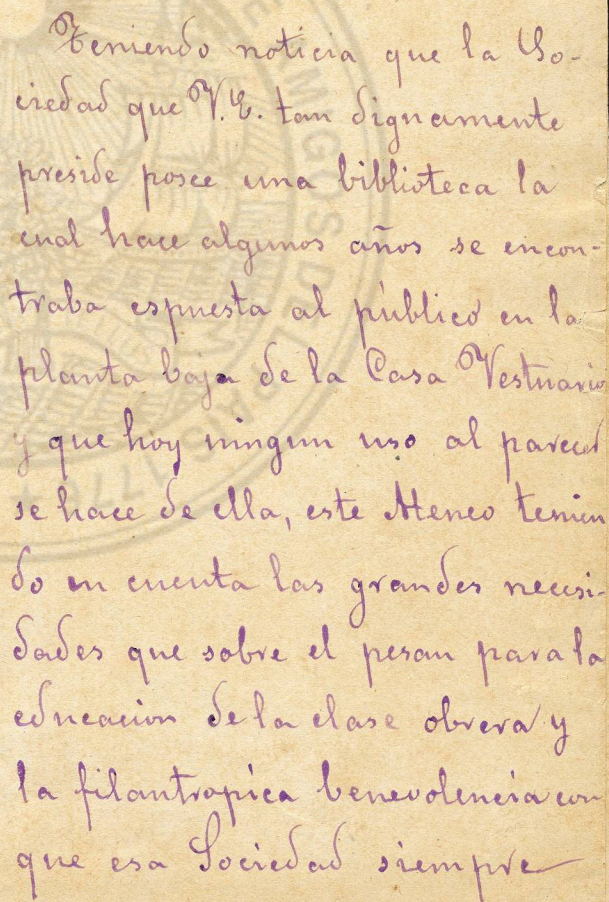 Teniendo noticia que la So-
ciedad que V.E. tan dignamente
preside posee una biblioteca la
cual hace algunos años se encon-
traba espuesta al público en la
planta baja de la Casa Vestuario
y que hoy ningun uso al parecer
se hace de ella, este Ateneo tenien
do en cuenta las grandes necesi-
dades que sobre el pesan para la
educacion de la clase obrera y
la filantropica benevolencia con
que esa Sociedad siempre
AMIGOS DEL PAIS 1764